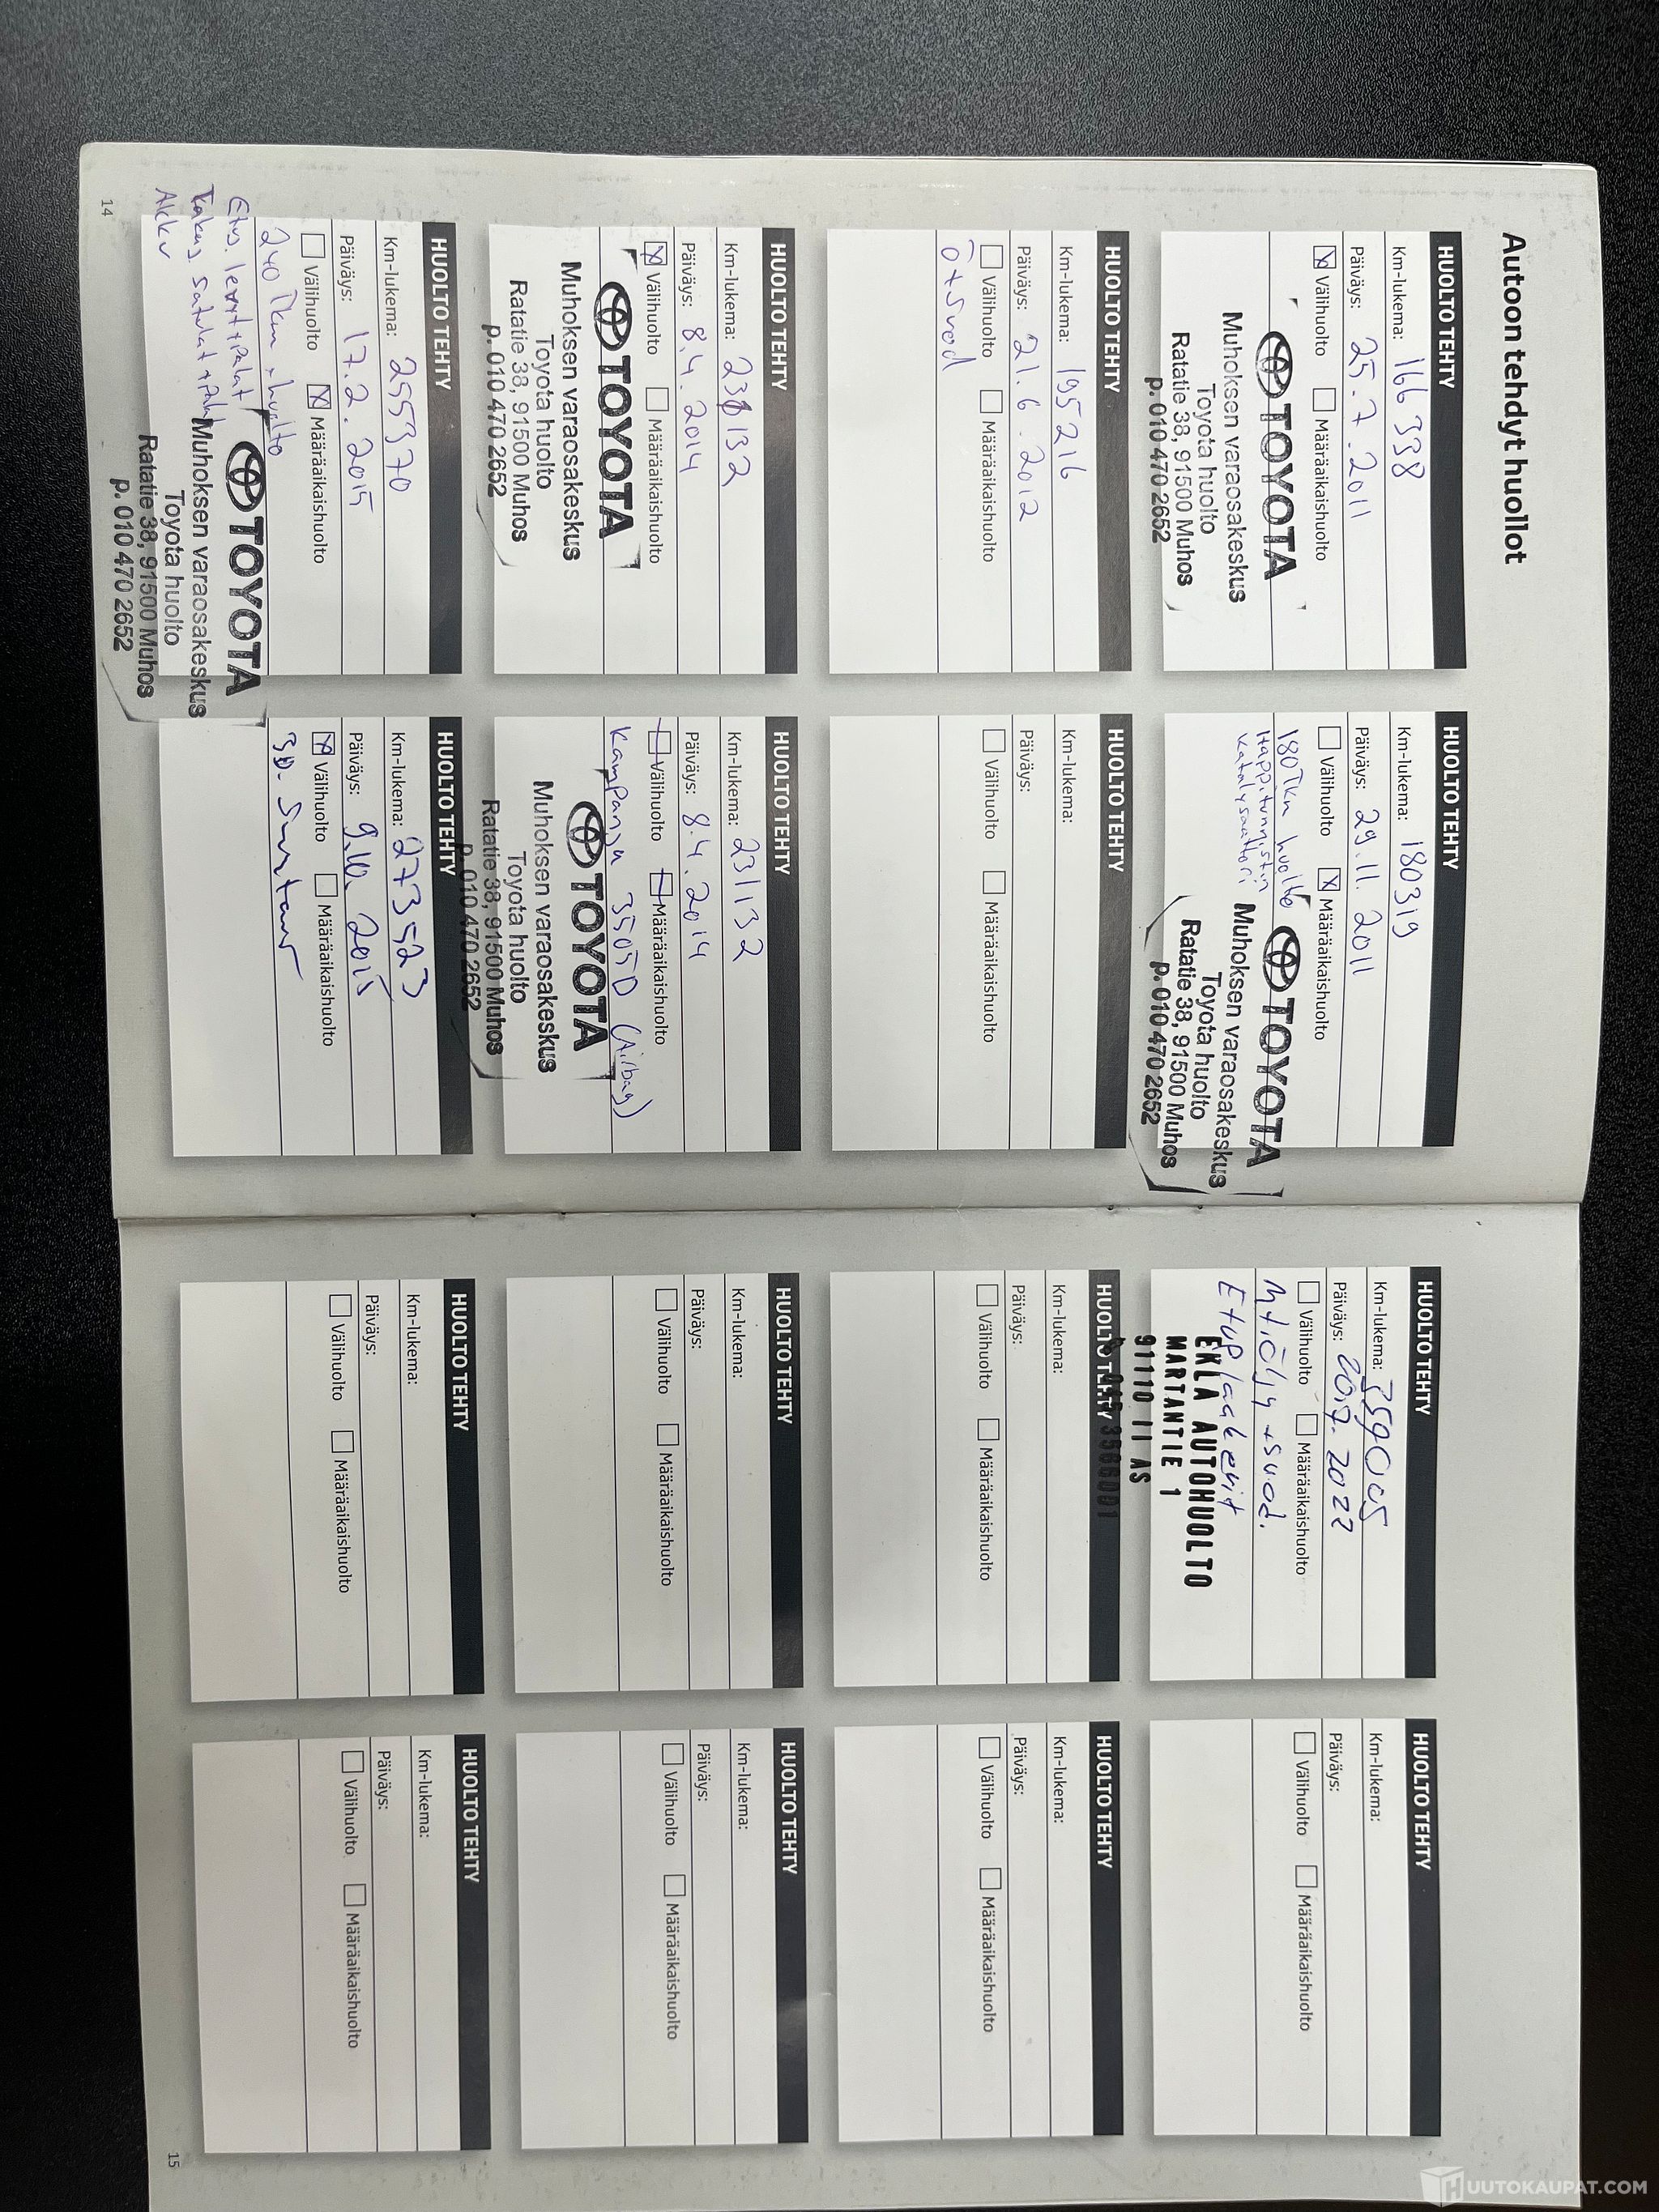 Autoon tehdyt huollot
HUOLTO TEHTY
Km-lukema: 166 338
Päiväys: 25.7.2011
☒ Välihuolto ☐ Määräaikaishuolto
TOYOTA
Muhoksen varaosakeskus
Toyota huolto
Ratatie 38, 91500 Muhos
p. 010 470 2652
HUOLTO TEHTY
Km-lukema: 180319
Päiväys: 29.11.2011
☐ Välihuolto ☒ Määräaikaishuolto
180Tkm huolto
Happitunnistin
Katalysaattori
TOYOTA
Muhoksen varaosakeskus
Toyota huolto
Ratatie 38, 91500 Muhos
p. 010 470 2652
HUOLTO TEHTY
Km-lukema: 195216
Päiväys: 21.6.2012
☐ Välihuolto ☐ Määräaikaishuolto
Ö+Suod
HUOLTO TEHTY
Km-lukema:
Päiväys:
☐ Välihuolto ☐ Määräaikaishuolto
HUOLTO TEHTY
Km-lukema: 231132
Päiväys: 8.4.2014
☒ Välihuolto ☐ Määräaikaishuolto
TOYOTA
Muhoksen varaosakeskus
Toyota huolto
Ratatie 38, 91500 Muhos
p. 010 470 2652
HUOLTO TEHTY
Km-lukema: 231132
Päiväys: 8.4.2014
☐ Välihuolto ☐ Määräaikaishuolto
Kampanja 3505D (Airbag)
TOYOTA
Muhoksen varaosakeskus
Toyota huolto
Ratatie 38, 91500 Muhos
p. 010 470 2652
HUOLTO TEHTY
Km-lukema: 255370
Päiväys: 17.2.2015
☐ Välihuolto ☒ Määräaikaishuolto
240 Tkm huolto
Etu. levyt+palat
Takas. satulat+palat
Akku
TOYOTA
Muhoksen varaosakeskus
Toyota huolto
Ratatie 38, 91500 Muhos
p. 010 470 2652
HUOLTO TEHTY
Km-lukema: 273523
Päiväys: 9.10.2015
☒ Välihuolto ☐ Määräaikaishuolto
14
HUOLTO TEHTY
Km-lukema: 359005
Päiväys: 2017.2022
☐ Välihuolto ☐ Määräaikaishuolto
Mt.öljy+suod.
Etup laakerit
EKLA AUTOHUOLTO
MARTANTIE 1
91110 II AS
HUOLTO TEHTY
Km-lukema:
Päiväys:
☐ Välihuolto ☐ Määräaikaishuolto
HUOLTO TEHTY
Km-lukema:
Päiväys:
☐ Välihuolto ☐ Määräaikaishuolto
HUOLTO TEHTY
Km-lukema:
Päiväys:
☐ Välihuolto ☐ Määräaikaishuolto
HUOLTO TEHTY
Km-lukema:
Päiväys:
☐ Välihuolto ☐ Määräaikaishuolto
HUOLTO TEHTY
Km-lukema:
Päiväys:
☐ Välihuolto ☐ Määräaikaishuolto
HUOLTO TEHTY
Km-lukema:
Päiväys:
☐ Välihuolto ☐ Määräaikaishuolto
HUOLTO TEHTY
Km-lukema:
Päiväys:
☐ Välihuolto ☐ Määräaikaishuolto
15
HUUTOKAUPAT.COM